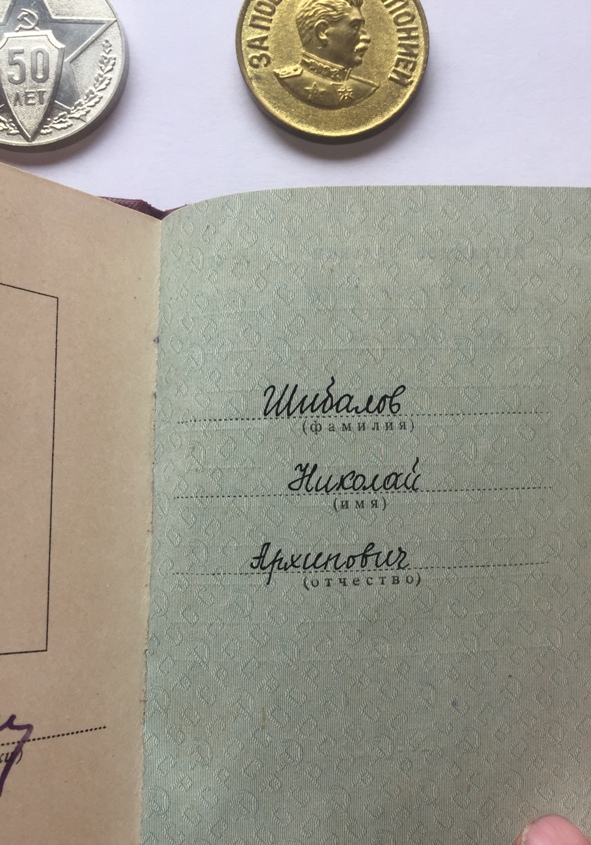 50
ЛЕТ
ЗА ПО ПОНИЕЙ
Шибалов
(фамилия)
Николай
(имя)
Архипович
(отчество)